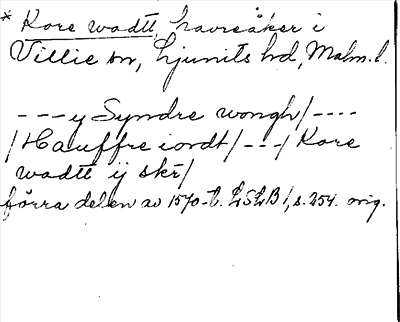 * Kore wadtt, havreåker i
Villie sn, Ljunits hd, Malm. l.
---y Syndre wongh/----
/Hauffre iordt/---/Kore
wadtt ij skr/
förra delen av 1570-t. LSLB 1, s. 254. orig.